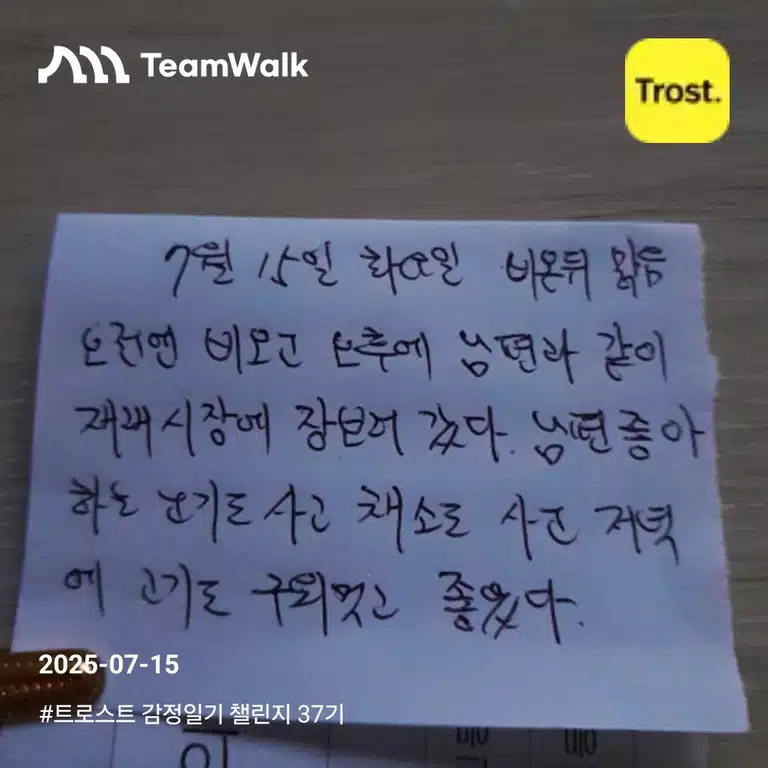 TeamWalk
Trost.
7월 15일 화요일 비온뒤 맑음
오전엔 비오고 오후에 남편과 같이
재래시장에 장보러 갔다. 남편좋아
하는 고기도 사고 채소도 사고 저녁
에 고기도 구워먹고 좋았다.
2025-07-15
#트로스트 감정일기 챌린지 37기